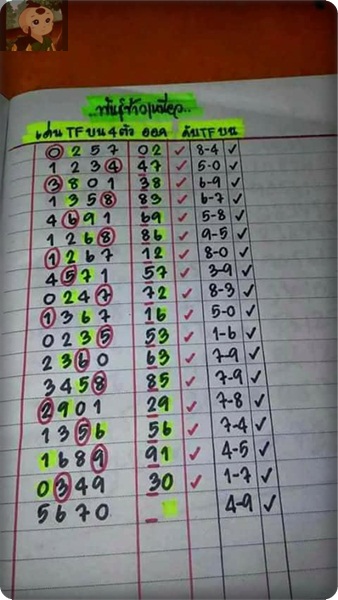 ..พันธุ์ข้าวเหนียว..
เด่น TF บน 4 ตัว ออก ดับ TF บน
0 2 5 7 02 ✓ 8-4 ✓
1 2 3 4 47 ✓ 5-0 ✓
3 8 0 1 38 ✓ 6-9 ✓
1 3 5 8 83 ✓ 6-7 ✓
4 6 9 1 69 ✓ 5-8 ✓
1 2 6 8 86 ✓ 9-5 ✓
1 2 6 7 12 ✓ 8-0 ✓
4 5 7 1 57 ✓ 3-9 ✓
0 2 4 7 72 ✓ 8-3 ✓
1 3 6 7 16 ✓ 5-0 ✓
0 2 3 5 53 ✓ 1-6 ✓
2 3 6 0 63 ✓ 7-9 ✓
3 4 5 8 85 ✓ 7-9 ✓
2 9 0 1 29 ✓ 7-8 ✓
1 3 5 6 56 ✓ 7-4 ✓
1 6 8 9 91 ✓ 4-5 ✓
0 3 4 9 30 ✓ 1-7 ✓
5 6 7 0 _ 4-9 ✓